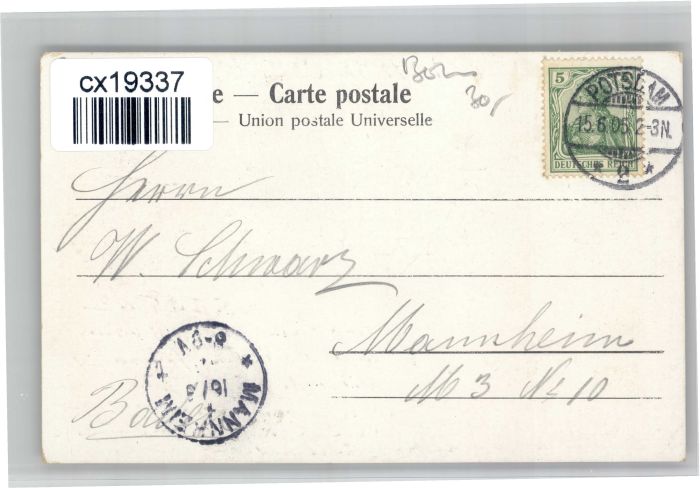 cx19337
e — Carte postale
— Union postale Universelle
30,
5
DEUTSCHES REICH
POTSDAM
15.6.05.2-3N.
* 2 *
Herrn
W. Schwarz
Mannheim
M 3 No 10
MANNHEIM
16/6
8-9V